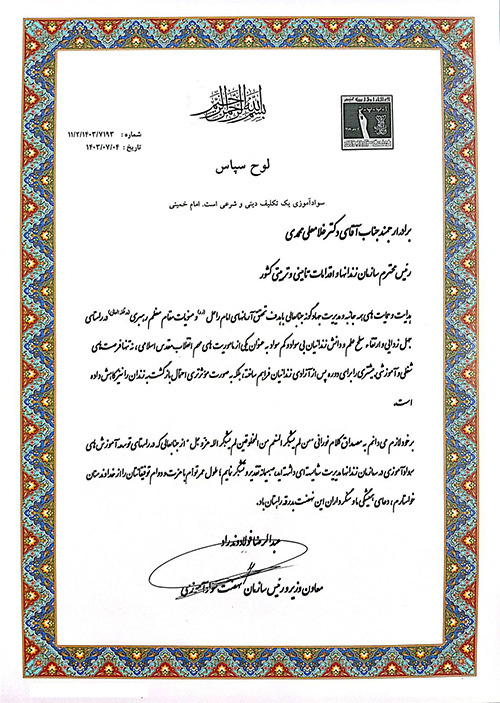 بسم الله الرحمن الرحیم
شماره : ۱۱/۲/۱۴۰۳/۷۱۹۳
تاریخ : ۱۴۰۳/۰۷/۰۴
لوح سپاس
سوادآموزی یک تکلیف دینی و شرعی است. امام خمینی
برادر ارجمند جناب آقای دکتر غلامعلی محمدی
رئیس محترم سازمان زندانها و اقدامات تامینی و تربیتی کشور
هدایت و حمایت های همه جانبه و مدیریت جهادگونه جنابعالی با هدف تحقق آرمانهای امام راحل (ره) و منویات مقام معظم رهبری در راستای
جهل زدایی و ارتقاء سطح علم و دانش زندانیان بی سواد و کم سواد به عنوان یکی از ماموریت های مهم انقلاب مقدس اسلامی، نه تنها فرصت های
شغلی و آموزشی بیشتری را برای دوره پس از آزادی زندانیان فراهم ساخته؛ بلکه به صورت موثرتری احتمال بازگشت به زندان را نیز کاهش داده
است.
برخود لازم می دانم به مصداق کلام نورانی "من لم یشکر المنعم من المخلوقین لم یشکر الله عز و جل" از جنابعالی که در راستای توسعه آموزش های
سوادآموزی در سازمان زندانها مدیریت شایسته ای داشته اید، صمیمانه تقدیر و تشکر نمایم؛ طول عمر توام با عزت و دوام توفیقاتتان را از خداوند منان
خواستارم، دعای همیشگی ما و سنگرداران این نهضت بدرقه راهتان باد.
عبدالرضا فولادوند راد
معاون وزیر و رئیس سازمان نهضت سوادآموزی